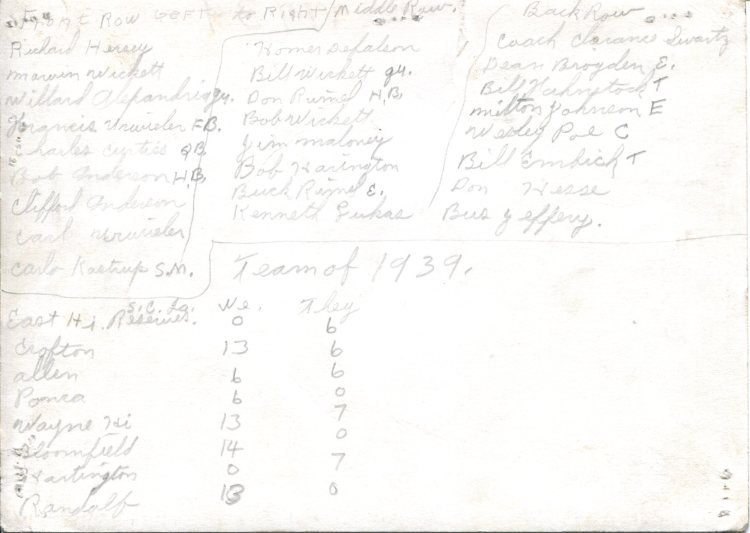 Front Row Left to Right
Richard Hersey
Marvin Wickett
Willard gu.
Francis F.B.
Charles Curtiss Q.B.
Bob Anderson H.B.
Clifford Anderson
Carl
Carlo Kastrup S.M.
Middle Row.
Homer
Bill Wickett gu.
Don Rimel H.B.
Bob Wickett
Jim Maloney
Bob Harington
Buck Rimel E.
Kenneth Lukas
Back Row
Coach Clarance Swartz
Dean Broyden E.
Bill T
Milton Johnson E
Wesley Poe C
Bill Embick T
Don Hesse
Bus Jeffery.
Team of 1939.
We. They
East Hi. Reserves. S.C. Ia. 0 6
Crofton 13 6
Allen 6 6
Ponca 6 0
Wayne Hi 13 7
Bloomfield 14 0
Hartington 0 7
Randolf 13 0